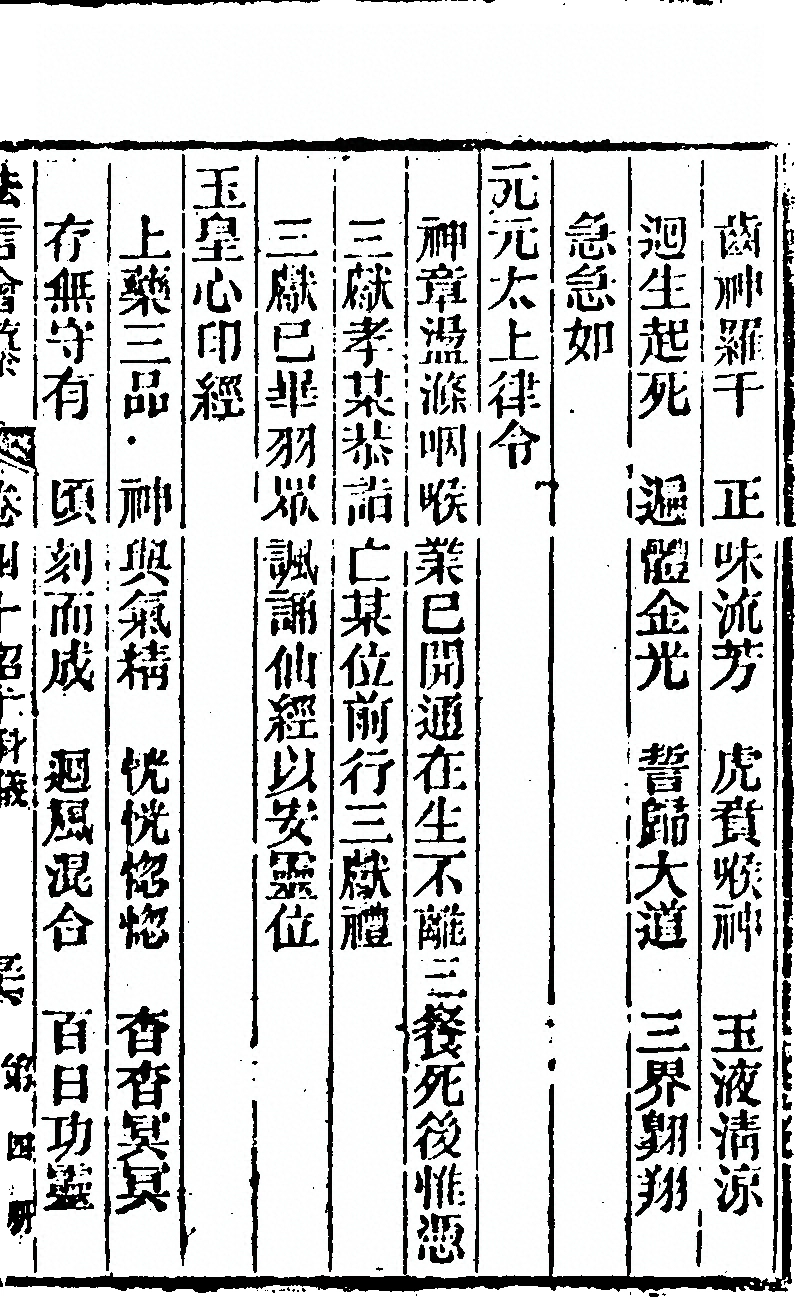 齒神羅千　正味流芳　虎賁喉神　玉液淸涼
迴生起死　遍體金光　誓歸大道　三界翺翔
急急如
元元太上律令
神章盪滌咽喉業已開通在生不離三餐死後惟憑
三獻孝某恭詣亡某位前行三獻禮
三獻已畢羽眾諷誦仙經以安靈位
玉皇心印經
上藥三品・神與氣精　恍恍惚惚　杳杳冥冥
存無守有　頃刻而成　迴風混合　百日功靈
法言會纂　卷四十　科儀　第四册